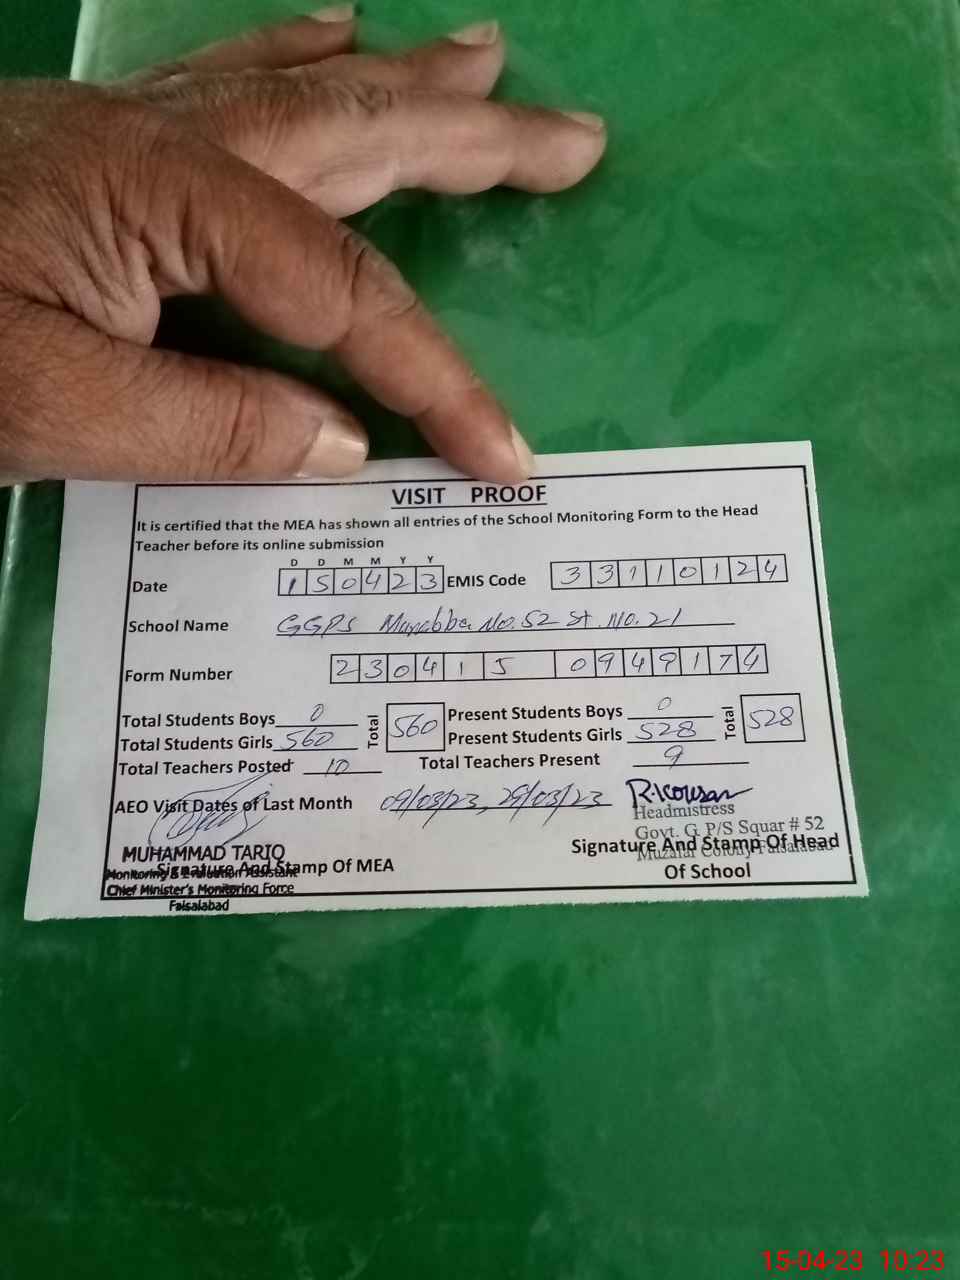 VISIT PROOF
It is certified that the MEA has shown all entries of the School Monitoring Form to the Head
Teacher before its online submission
D D M M Y Y
Date 150423 EMIS Code 33110124
School Name GGPS Murabba No. 52 St. No. 21
Form Number 230415 0949174
Total Students Boys 0 Total 560 Present Students Boys 0 Total 528
Total Students Girls 560 Present Students Girls 528
Total Teachers Posted 10 Total Teachers Present 9
AEO Visit Dates of Last Month 09/03/23, 29/03/23 R.Kousar
Headmistress
Govt. G. P/S Squar # 52
Muzafar Colony Faisalabad
MUHAMMAD TARIQ
Monitoring & Evaluation Assistant
Chief Minister's Monitoring Force
Faisalabad
Signature And Stamp Of MEA
Signature And Stamp Of Head
Of School
15-04-23 10:23